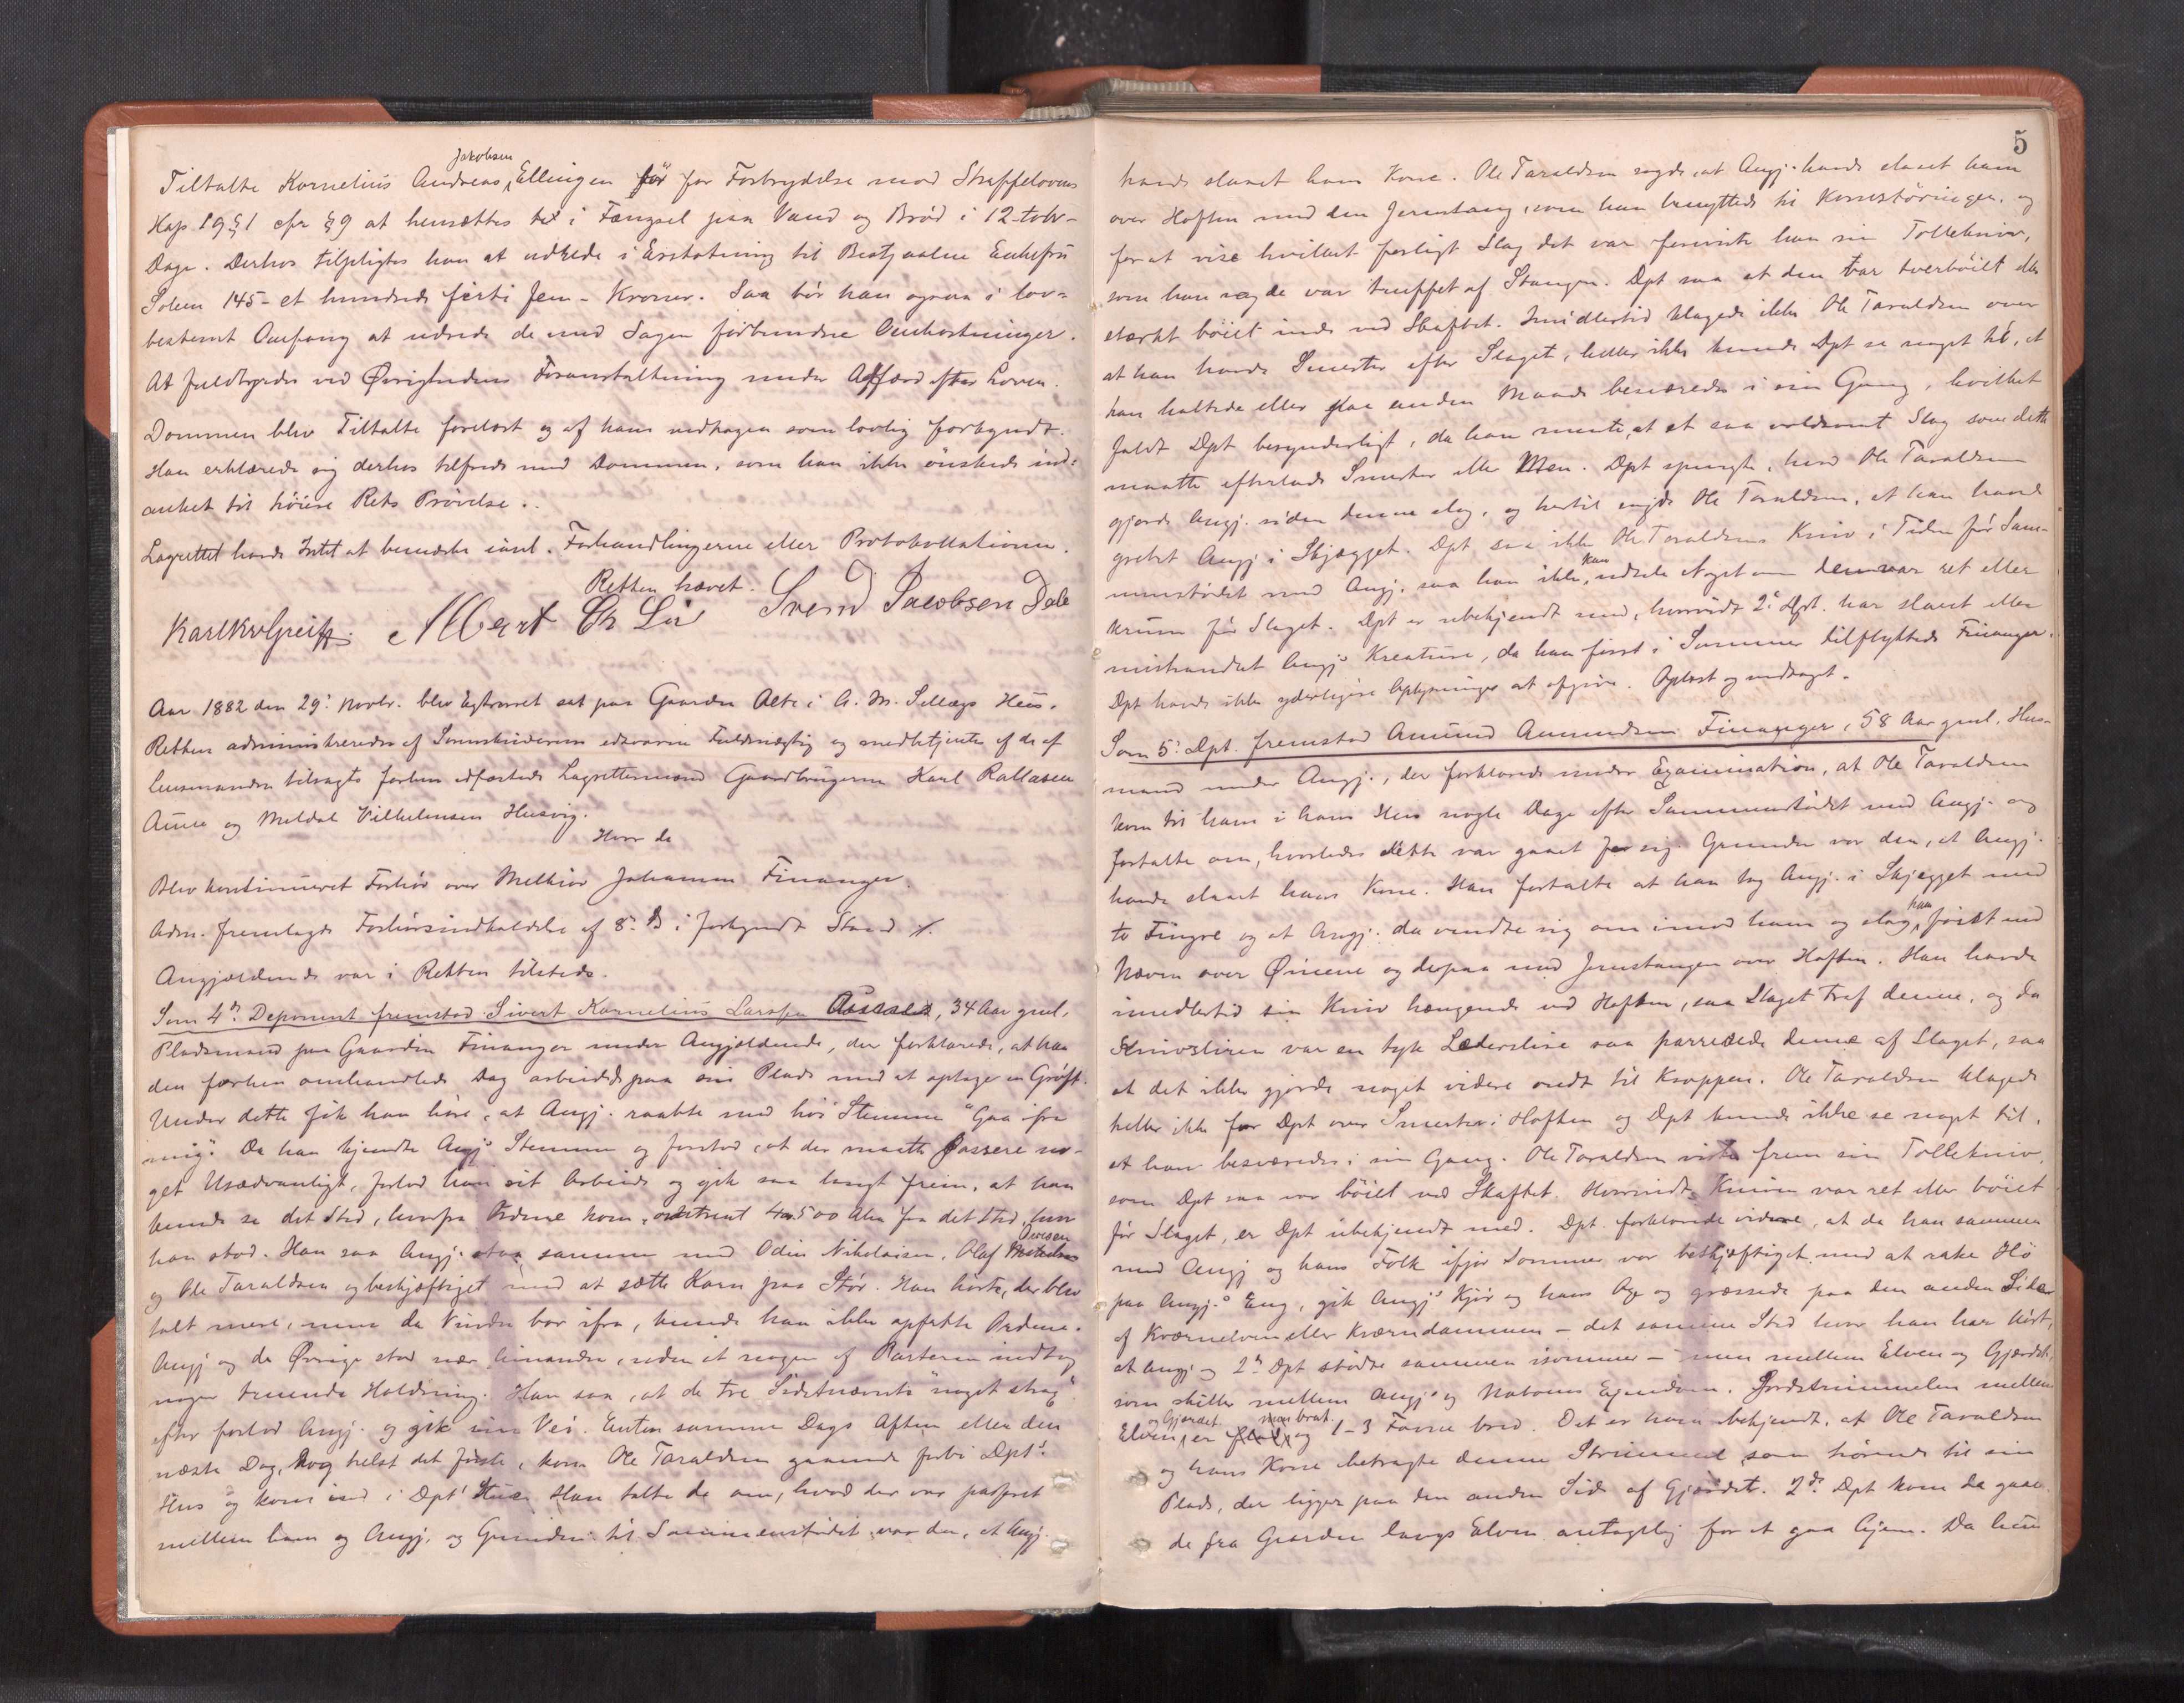 Jakobsen
Tiltalte Kornelius Andreas Ellingen for for Forbrydelse mod Straffelovens
Kap 19 § 1 cfr § 9 at hensættes til i Fængsel paa Vand og Brød i 12 - tolv -
Dage. Derhos tilpligtes han at udrede i Erstatning til Bestjaalne Enkefru
Solem 145 - et hundrede førti fem - Kroner. Saa bør han ogsaa i lov-
bestemt Omfang at udrede de med Sagen forbundne Omkostninger.
At fuldbyrdes ved Øvrighedens Foranstaltning under Adfærd efter Loven.
Dommen blev Tiltalte forelæst og af ham vedtagen som lovlig forkyndt.
Han erklærede sig derhos tilfreds med Dommen, som han ikke ønskede ind-
anket til høiere Rets Prøvelse.
Lagrettet havde Intet at bemærke imod Forhandlingerne eller Protokollationen.
Retten hævet.
Karl Kr Greiff. Albert Chr Lie Svend Jacobsen Dale
Aar 1882 den 29. Novbr. blev Extraret sat paa Gaarden i A. M. Selægs Hus.
Retten administreredes af Sorenskriverens edsvorne Fuldmægtig og medbetjentes af de af
Lensmanden tilsagte forhen edfæstede Lagrettemænd Gaardbrugerne Karl Rallasen
Aune og Meldal Vilhelmsen Husvig.
Hvor da
Blev kontinueret Forhør over Melkior Johansen Finanger.
Adm. fremlagde Forhørsindkaldelse af 8. ds i forkyndt Stand ./.
Angjældende var i Retten tilstede.
Som 4de Deponent fremstod Sivert Kornelius Larssen, 34 Aar gml.
Pladsmand paa Gaarden Finanger under Angjældende, der forklarede, at han
den forhen omhandlede Dag arbeidede paa sin Plads med at optage en Grøft.
Under dette fik han høre, at Angj. raabte med høi Stemme "Gaa ifra
mig". Da han kjendte Angj's Stemme og forstod, at der maatte passere no-
get Usædvanligt, forlod han sit Arbeide og gik saa langt frem, at han
kunde se det Sted, hvorfra Ordene kom, omtrent 4 a 500 Alen fra det Sted hvor
Iversen
han stod. Han saa Angj. staa sammen med Odin Nikolaisen, Olaf
og Ole Taraldsen og beskjæftiget med at sætte Korn paa Stør. Han hørte, der blev
talt mere, men da Vinden bar ifra, kunde han ikke opfatte Ordene.
Angj og de Øvrige stod nær hinanden, uden at nogen af Parterne indtog
nogen truende Holdning. Han saa, at de tre Sidstnævnte noget strax
efter forlod Angj. og gik sin Vei. Enten samme Dags Aften eller den
næste Dag, dog helst det første, kom Ole Taraldsen gaaende forbi Dpts
Hus og kom ind i Dpts Stue. Han talte da om, hvad der var passeret
mellem ham og Angj. og Grunden til Sammenstødet var den, at Angj.
5
havde slaaet hans Kone. Ole Taraldsen sagde, at Angj. havde slaaet ham
over Hoften med den Jernstang, som han benyttede til Kornstøringen, og
for at vise hvilket farligt Slag det var foreviste han sin Tollekniv,
som han sagde var truffet af Stangen. Dpt saa at den var tverbøiet eller
stærkt bøiet inde ved Skaftet. Imidlertid klagede ikke Ole Taraldsen over
at han havde Smerter efter Slaget, heller ikke kunde Dpt se noget til, at
han haltede eller paa anden Maade besværedes i sin Gang, hvilket
faldt Dpt besynderligt, da han mente, at et saa voldsomt Slag som dette
maatte efterlade Smerter eller Men. Dpt spurgte, hvad Ole Taraldsen
gjorde Angj. siden denne slog, og hertil sagde Ole Taraldsen, at han havde
grebet Angj i Skjægget. Dpt saa ikke Ole Taraldsens Kniv i Tiden før Sam-
kan
menstødet med Angj. saa han ikke udtale Noget om den var ret eller
krum før Slaget. Dpt er ubekjendt med, hvorvidt 2. Dpt. har slaaet eller
mishandlet Angj's Kreature, da han først i Sommer tilflyttede Finanger.
Dpt havde ikke yderligere Oplysninger at afgive. Oplæst og vedtaget.
Som 5. Dpt. fremstod Amund Amundsen Finanger, 58 Aar gml. Hus-
mand under Angj., der forklarede under Examination, at Ole Taraldsen
kom til ham i hans Hus nogle Dage efter Sammenstødet med Angj. og
fortalte om, hvorledes dette var gaaet for sig. Grunden var den, at Angj.
havde slaaet hans Kone. Han fortalte at han tog Angj. i Skjægget med
ham
to Fingre og at Angj. da vendte sig om imod ham og slog først med
Næven over Øinene og derpaa med Jernstangen over Hoften. Han havde
imidlertid sin Kniv hængende ved Hoften, saa Slaget traf denne, og da
Knivsliren var en tyk Læderslire saa parrerede denne af Slaget, saa
at det ikke gjorde noget videre ondt til Kroppen. Ole Taraldsen klagede
heller ikke for Dpt over Smerter i Hoften og Dpt kunde ikke se noget til,
at han besværedes i sin Gang. Ole Taraldsen viste frem sin Tollekniv,
som Dpt saa var bøiet ved Skaftet. Hvorvidt Kniven var ret eller bøiet
før Slaget, er Dpt ubekjendt med. Dpt. forklarede videre, at da han sammen
med Angj og hans Folk ifjor Sommer var beskjæftiget med at rake Hø
paa Angj.s Eng, gik Angj's Kjør og hans Øg og græssede paa den anden Side
af Kværnelven eller Kværndammen - det samme Sted hvor han har hørt,
at Angj og 2de Dpt stødte sammen isommer - men mellem Elven og Gjærdet,
som skiller mellem Angj's og Naboens Eiendom. Jordstrimmelen mellem
og Gjærdet men brat
Elven er flad og 1-3 Favne bred. Det er ham bekjendt, at Ole Taraldsen
og hans Kone betragte denne Strimmel som hørende til sin
Plads, der ligger paa den anden Side af Gjærdet. 2de Dpt kom da gaaen-
de fra Gaarden langs Elven antagelig for at gaa hjem. Da hun